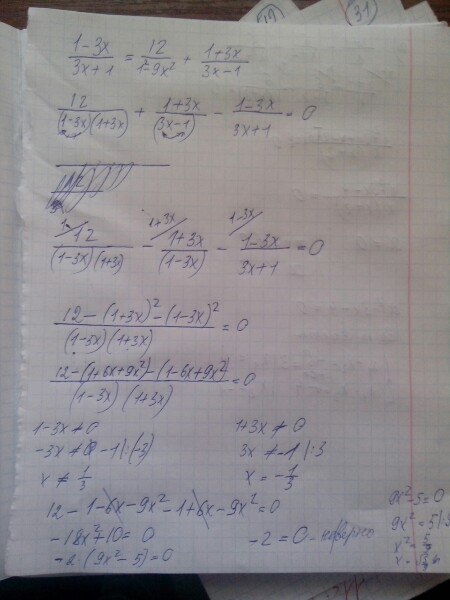 19
31
(1-3x)/(3x+1) = 12/(1-9x²) + (1+3x)/(3x-1)
12/((1-3x)(1+3x)) + (1+3x)/(3x-1) - (1-3x)/(3x+1) = 0
12/((1-3x)(1+3x)) - (1+3x)/(1-3x) - (1-3x)/(3x+1) = 0
(12-(1+3x)²-(1-3x)²)/((1-3x)(1+3x)) = 0
(12-(1+6x+9x²)-(1-6x+9x²))/((1-3x)(1+3x)) = 0
1-3x≠0
-3x≠-1 |:(-3)
x≠1/3
1+3x≠0
3x≠-1 |:3
x=-1/3
12-1-6x-9x²-1+6x-9x²=0
-18x²+10=0
-2(9x²-5)=0
-2=0-неверно
9x²-5=0
9x²=5